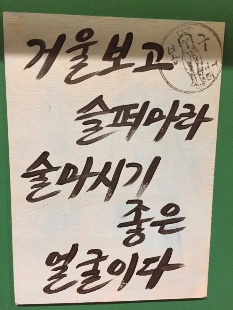 거울보고
슬퍼마라
술마시기
좋은
얼굴이다